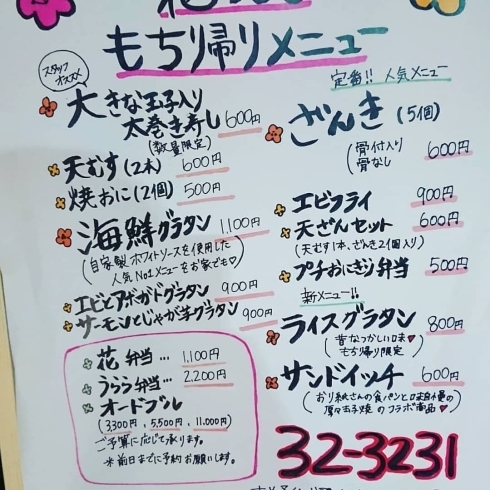 もち帰りメニュー
スタッフオススメ
大きな玉子入り
太巻き寿し 600円
(数量限定)
天むす(2本) 600円
焼おに(2個) 500円
海鮮グラタン 1,100円
(自家製ホワイトソースを使用した
人気No1メニューをお家でも♡)
エビとアボガドグラタン 900円
サーモンとじゃが芋グラタン 900円
花弁当… 1,100円
うらら弁当… 2,200円
オードブル
(3300円, 5,500円, 11,000円)
ご予算に応じて承ります。
※前日までに予約お願いします。
定番!! 人気メニュー
ざんき(5個)
(骨付入り
骨なし) 600円
エビフライ 900円
天ざんセット 600円
(天むす1本、ざんき2個入り)
プチおにぎり弁当 500円
新メニュー!!
ライスグラタン 800円
(昔なつかしい味♥
もち帰り限定)
サンドイッチ 600円
(おり紙さんの食パンと
厚々玉子焼のコラボ商品♥)
32-3231